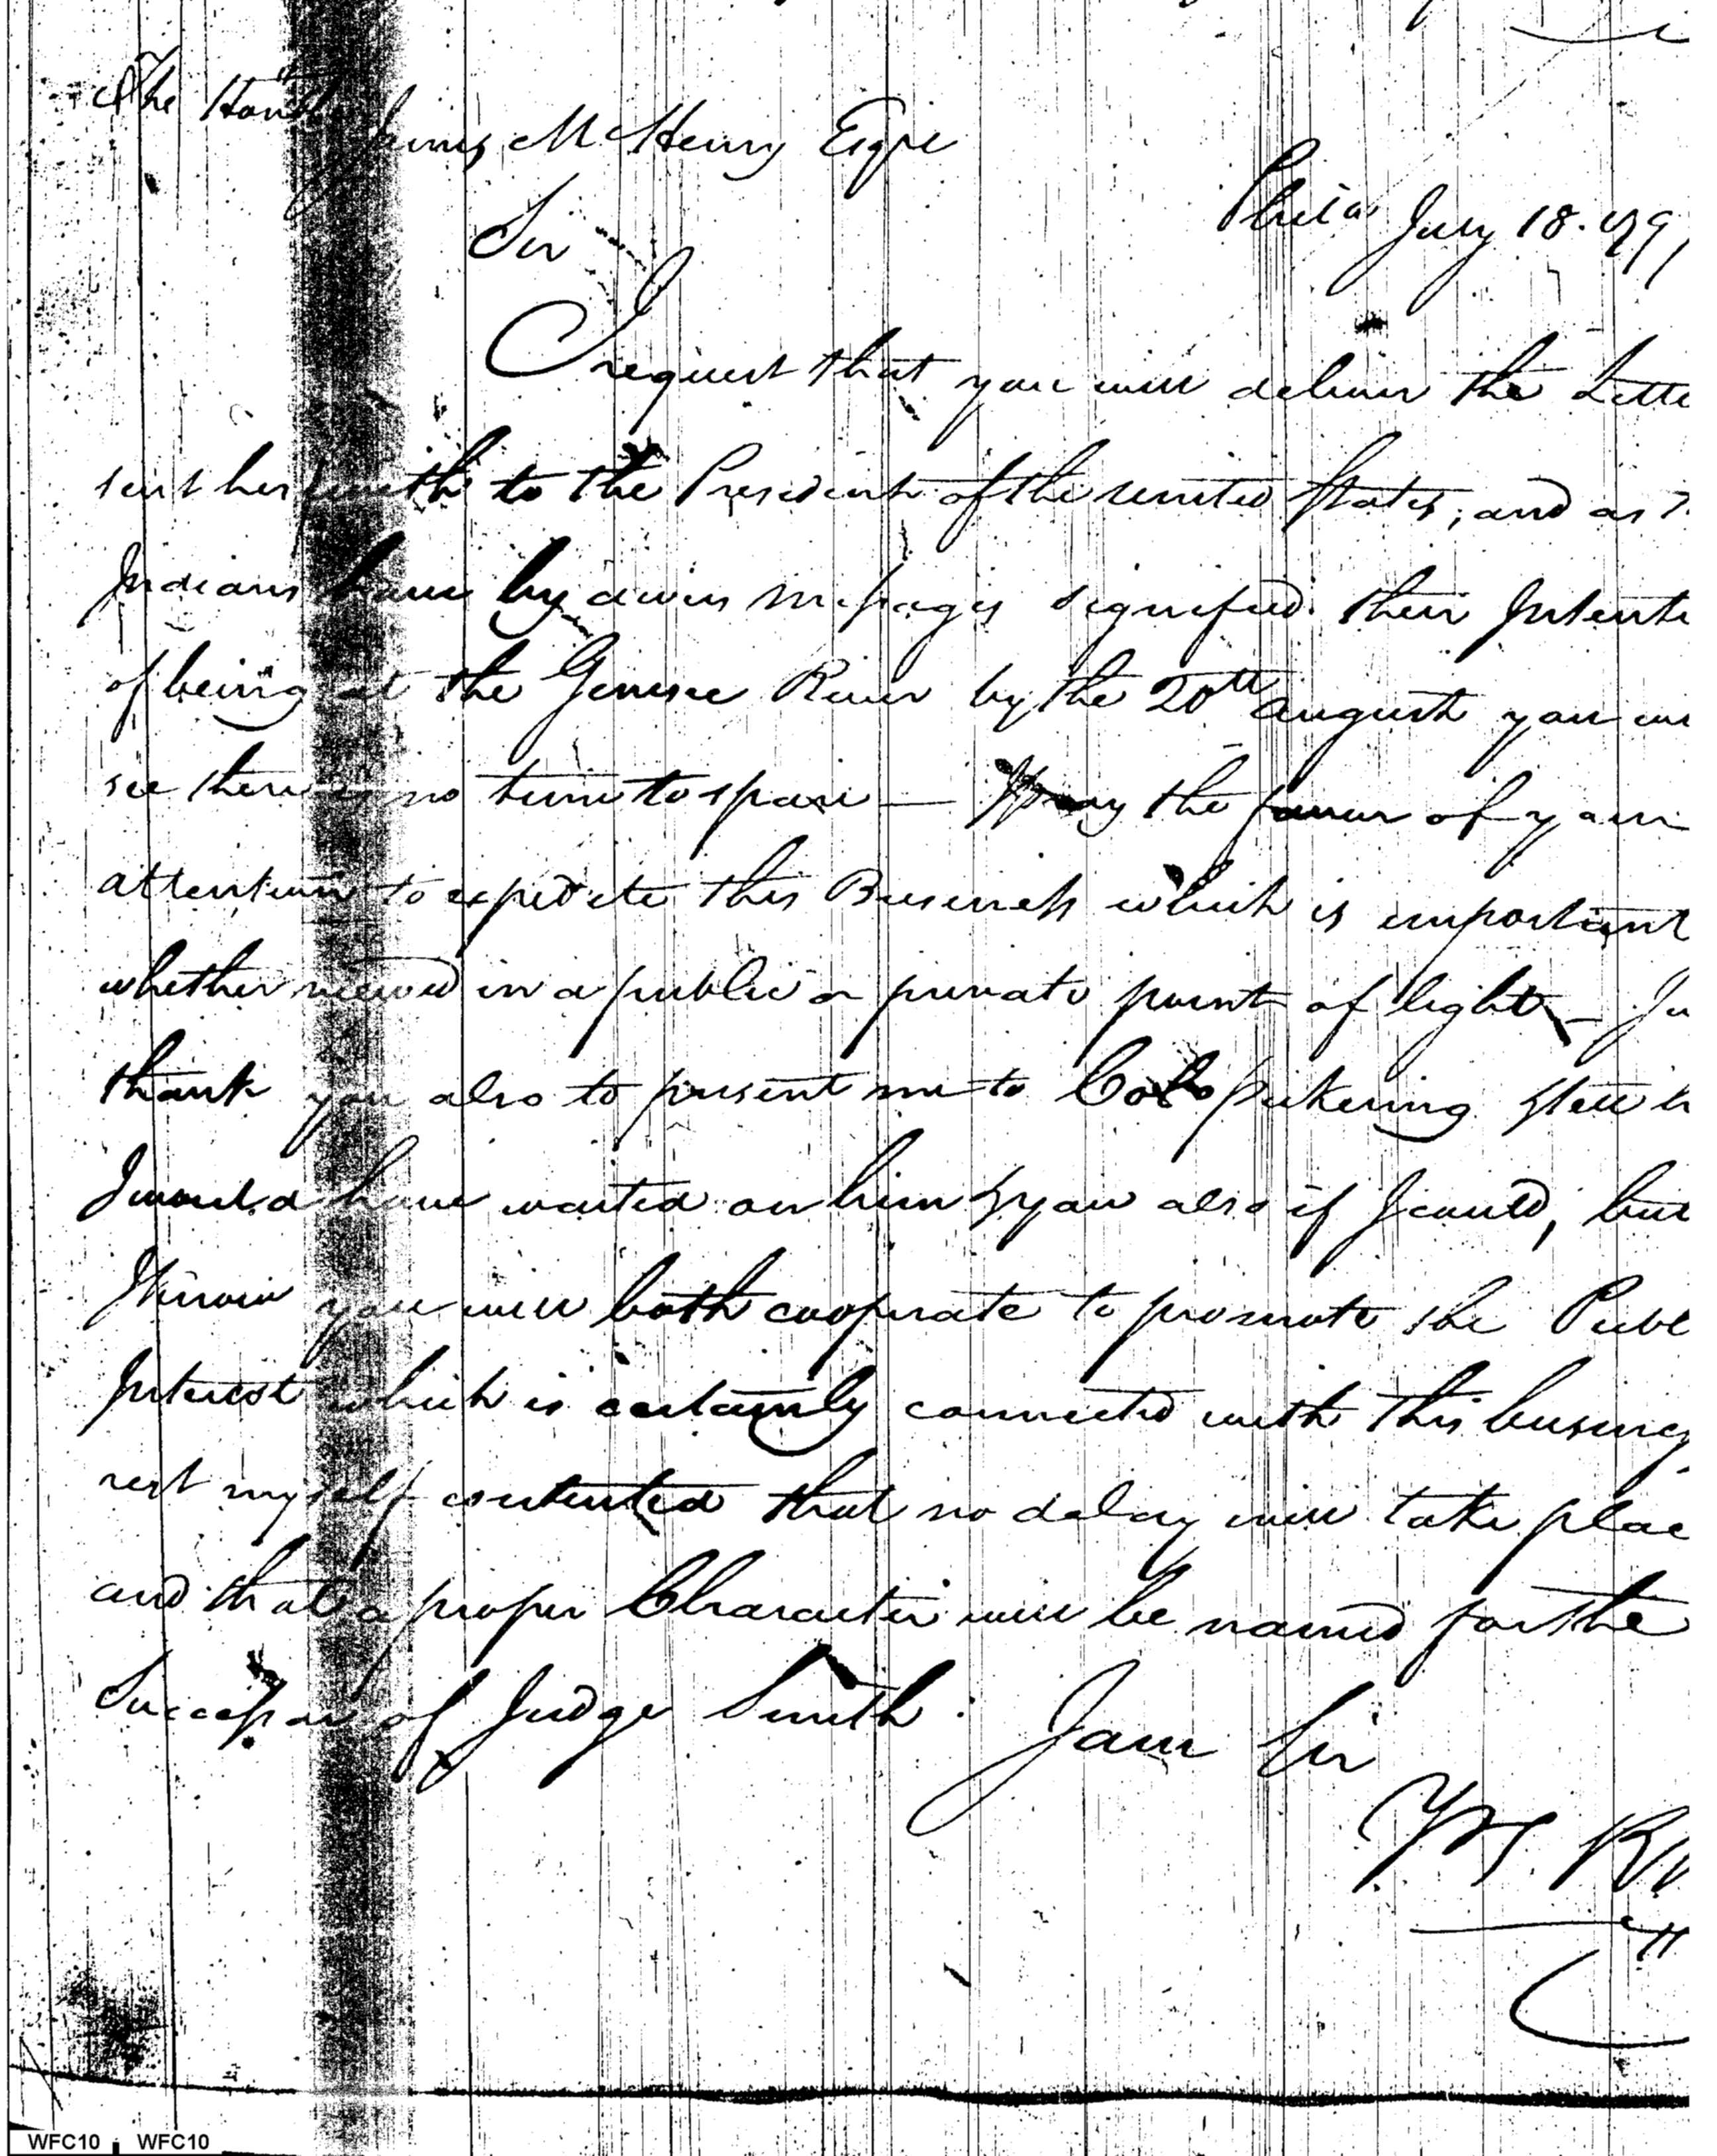 The Honble
James McHenry Esqre
Phila July 18. 179
Sir
I request that you will deliver the Lette
sent herewith to the President of the united States, and as
Indians have by divers messages signified their Intenti
of being at the Genesee River by the 20th august you wi
see there is no time to spare — the favour of your
attention to expedite this Business which is important
whether viewed in a public or private point of light —
thank you also to present me to Colo Pickering
I would have waited on him & you also if I could, but
I know you will both cooperate to promote the Publ
Interest which is certainly connected with this busines
rest myself contented that no delay will take plac
and that a proper Character will be named for the
Successor of Judge Smith. I am Sir
WFC10 WFC10